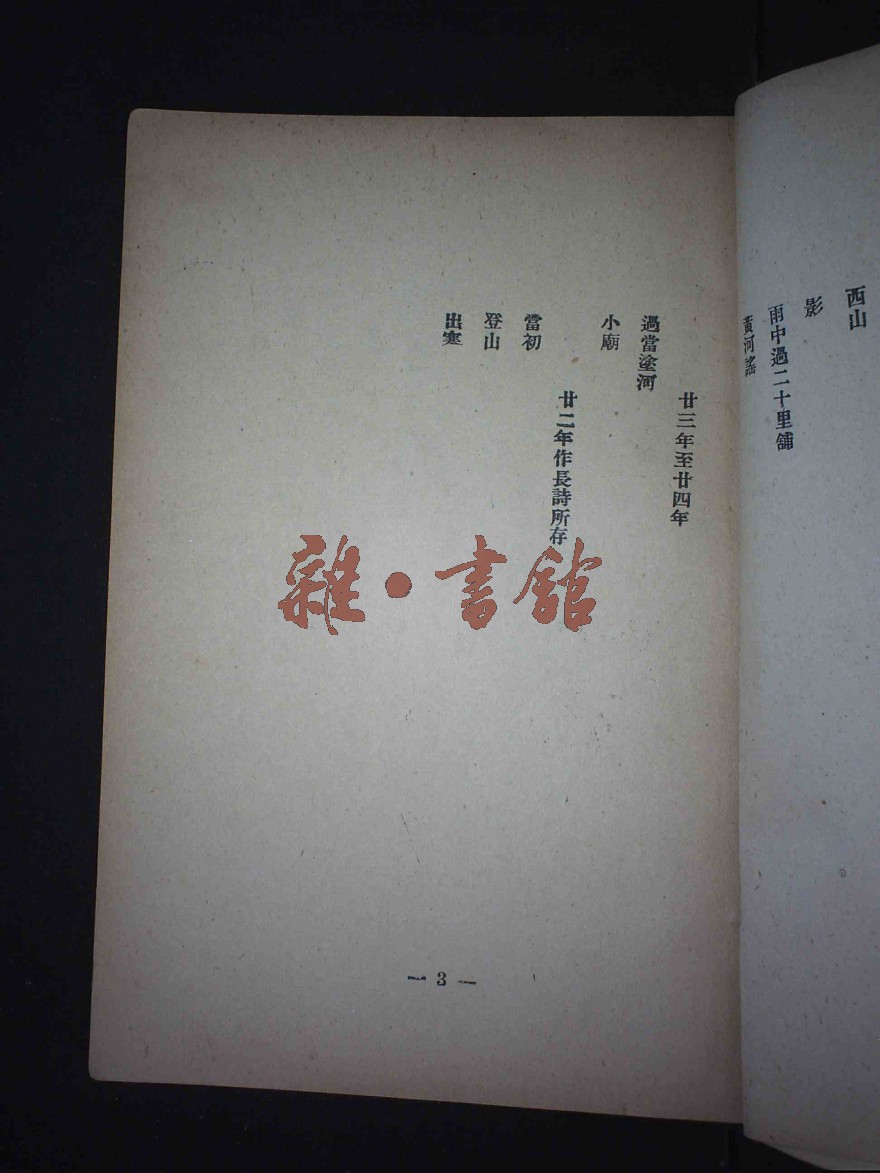 西山
影
雨中過二十里舖
黃河謠
廿三年至廿四年
過當塗河
小廟
廿二年作長詩所存
當初
登山
出塞
雜·書館
— 3 —